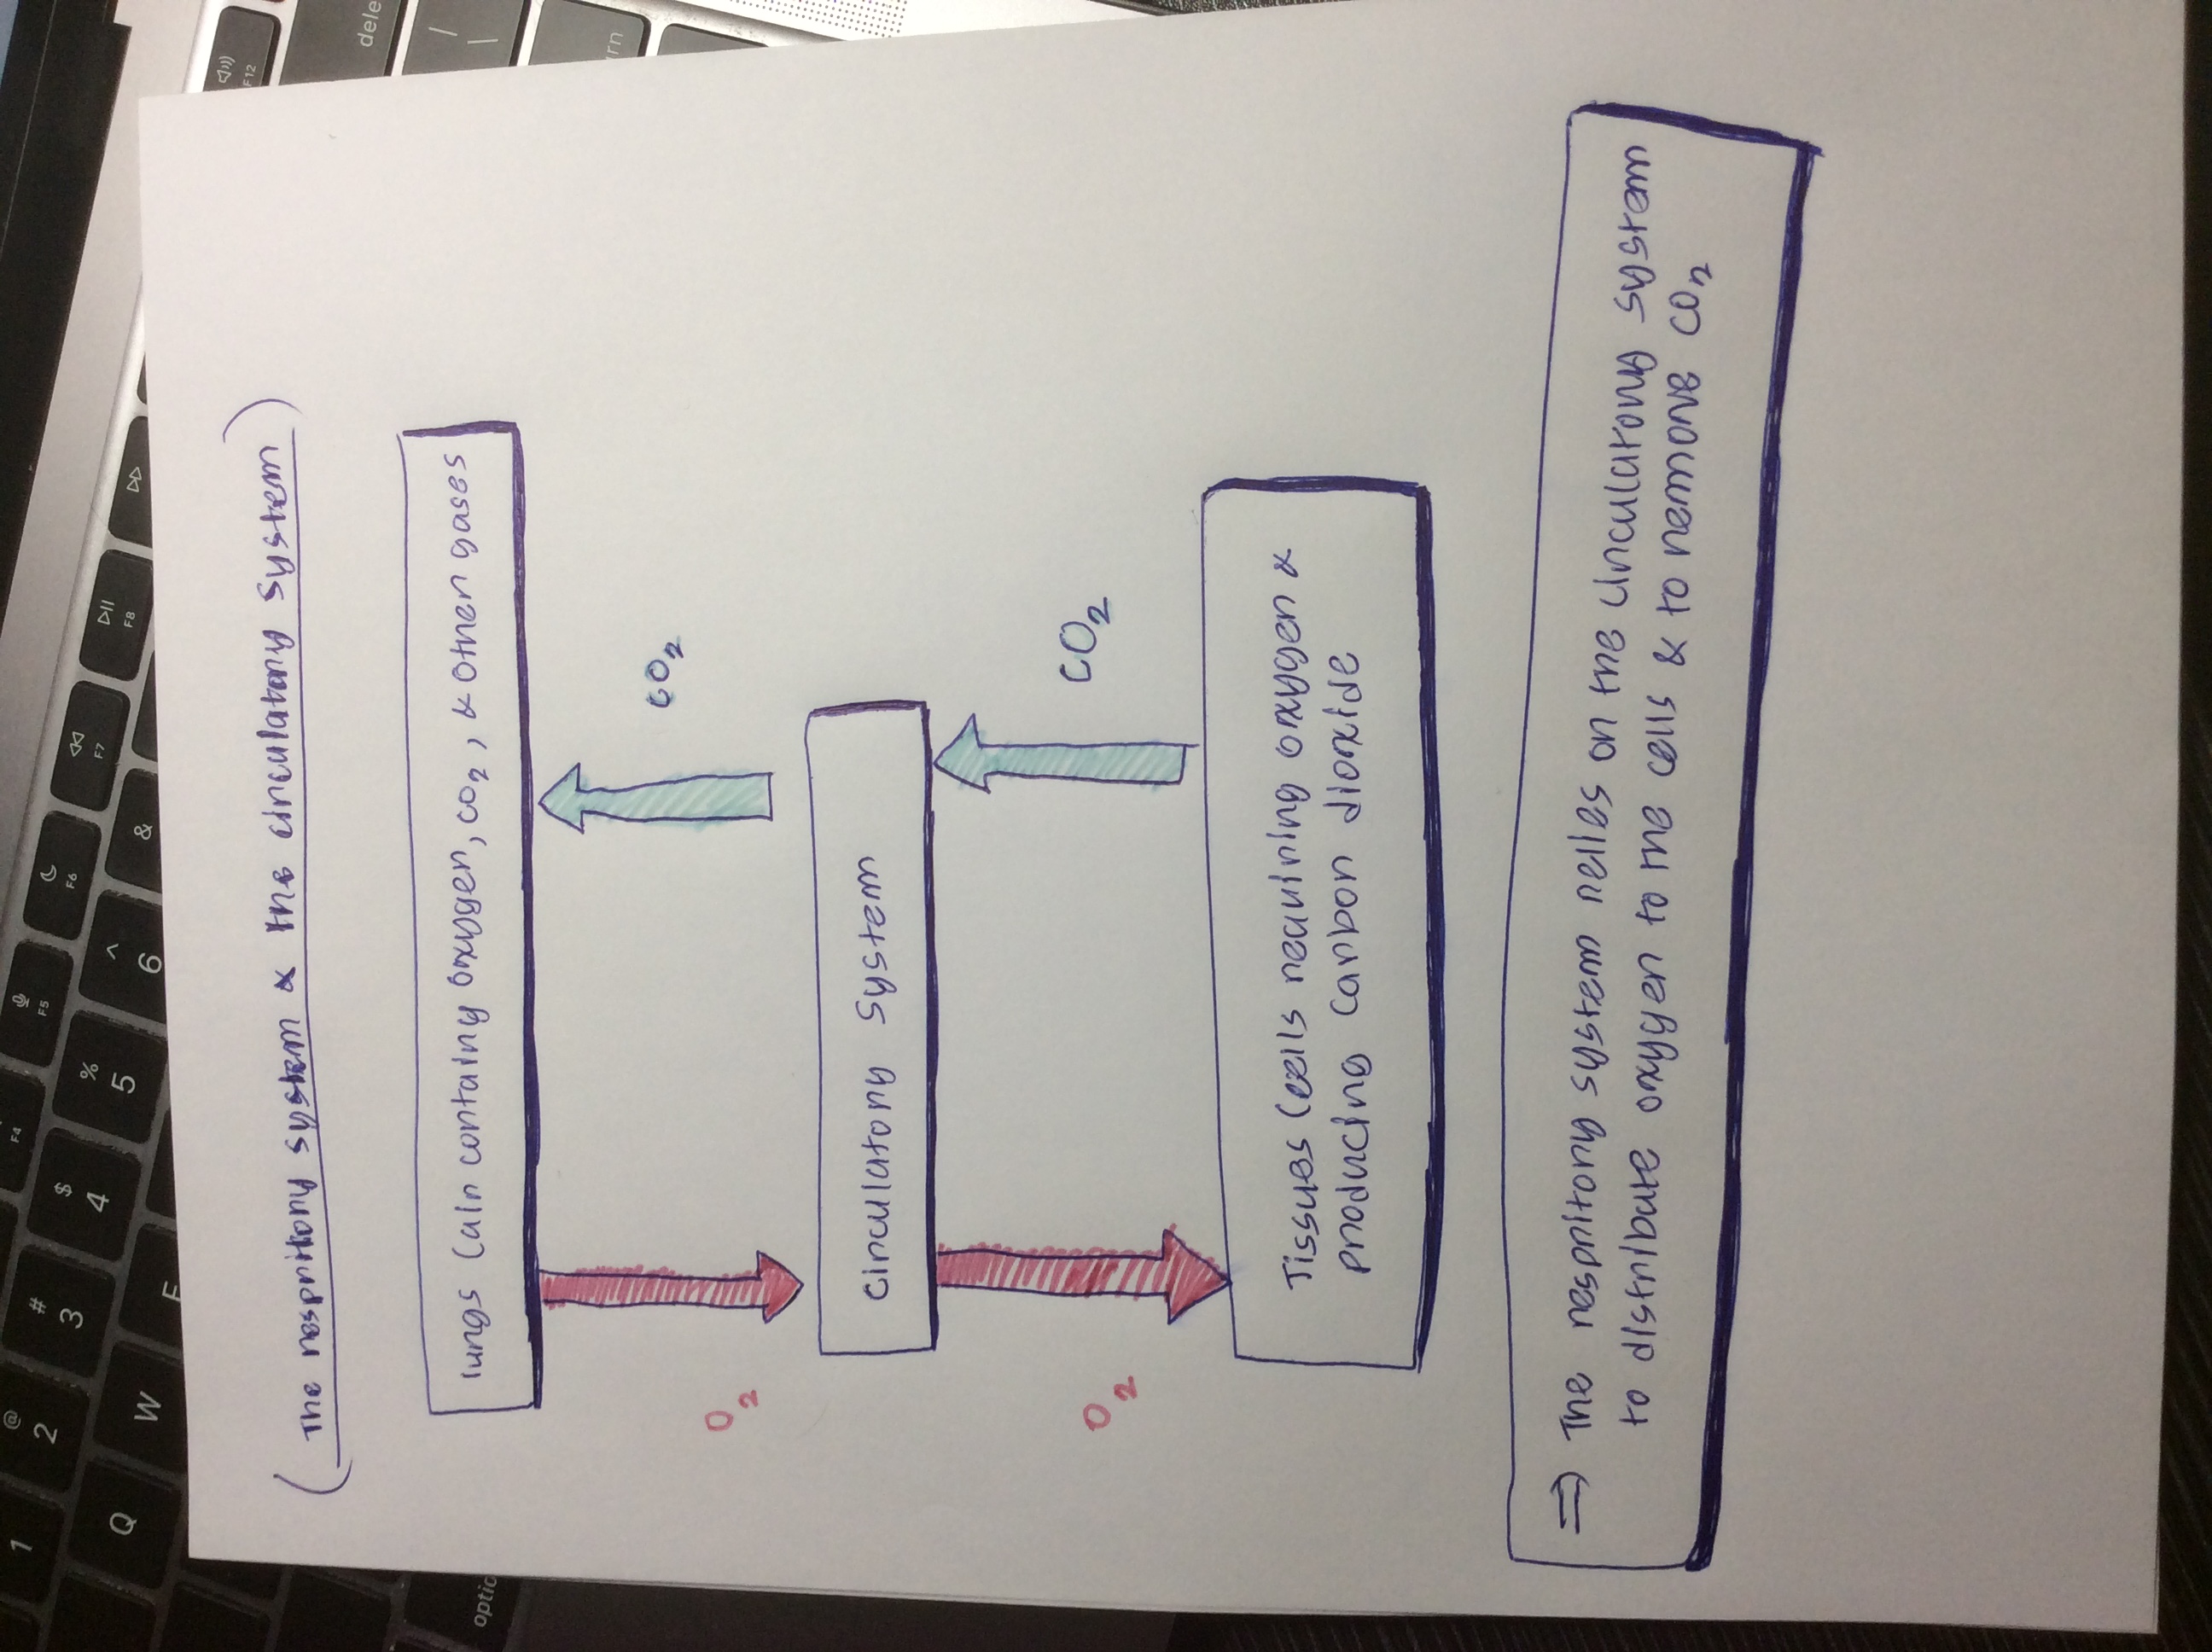 (The respritory system & the circulatory system)
lungs (air containg oxygen, co₂, & other gases
O₂
CO₂
circulatory system
O₂
CO₂
Tissues (cells requiring oxygen &
producing carbon dioxide
⇒ The respritory system relies on the circulatory system
to distribute oxygen to the cells & to remove CO₂
F12
dele
F8
F7
F6
F5
F4
&
^
6
%
5
$
4
#
3
@
2
1
Q
W
E
optio